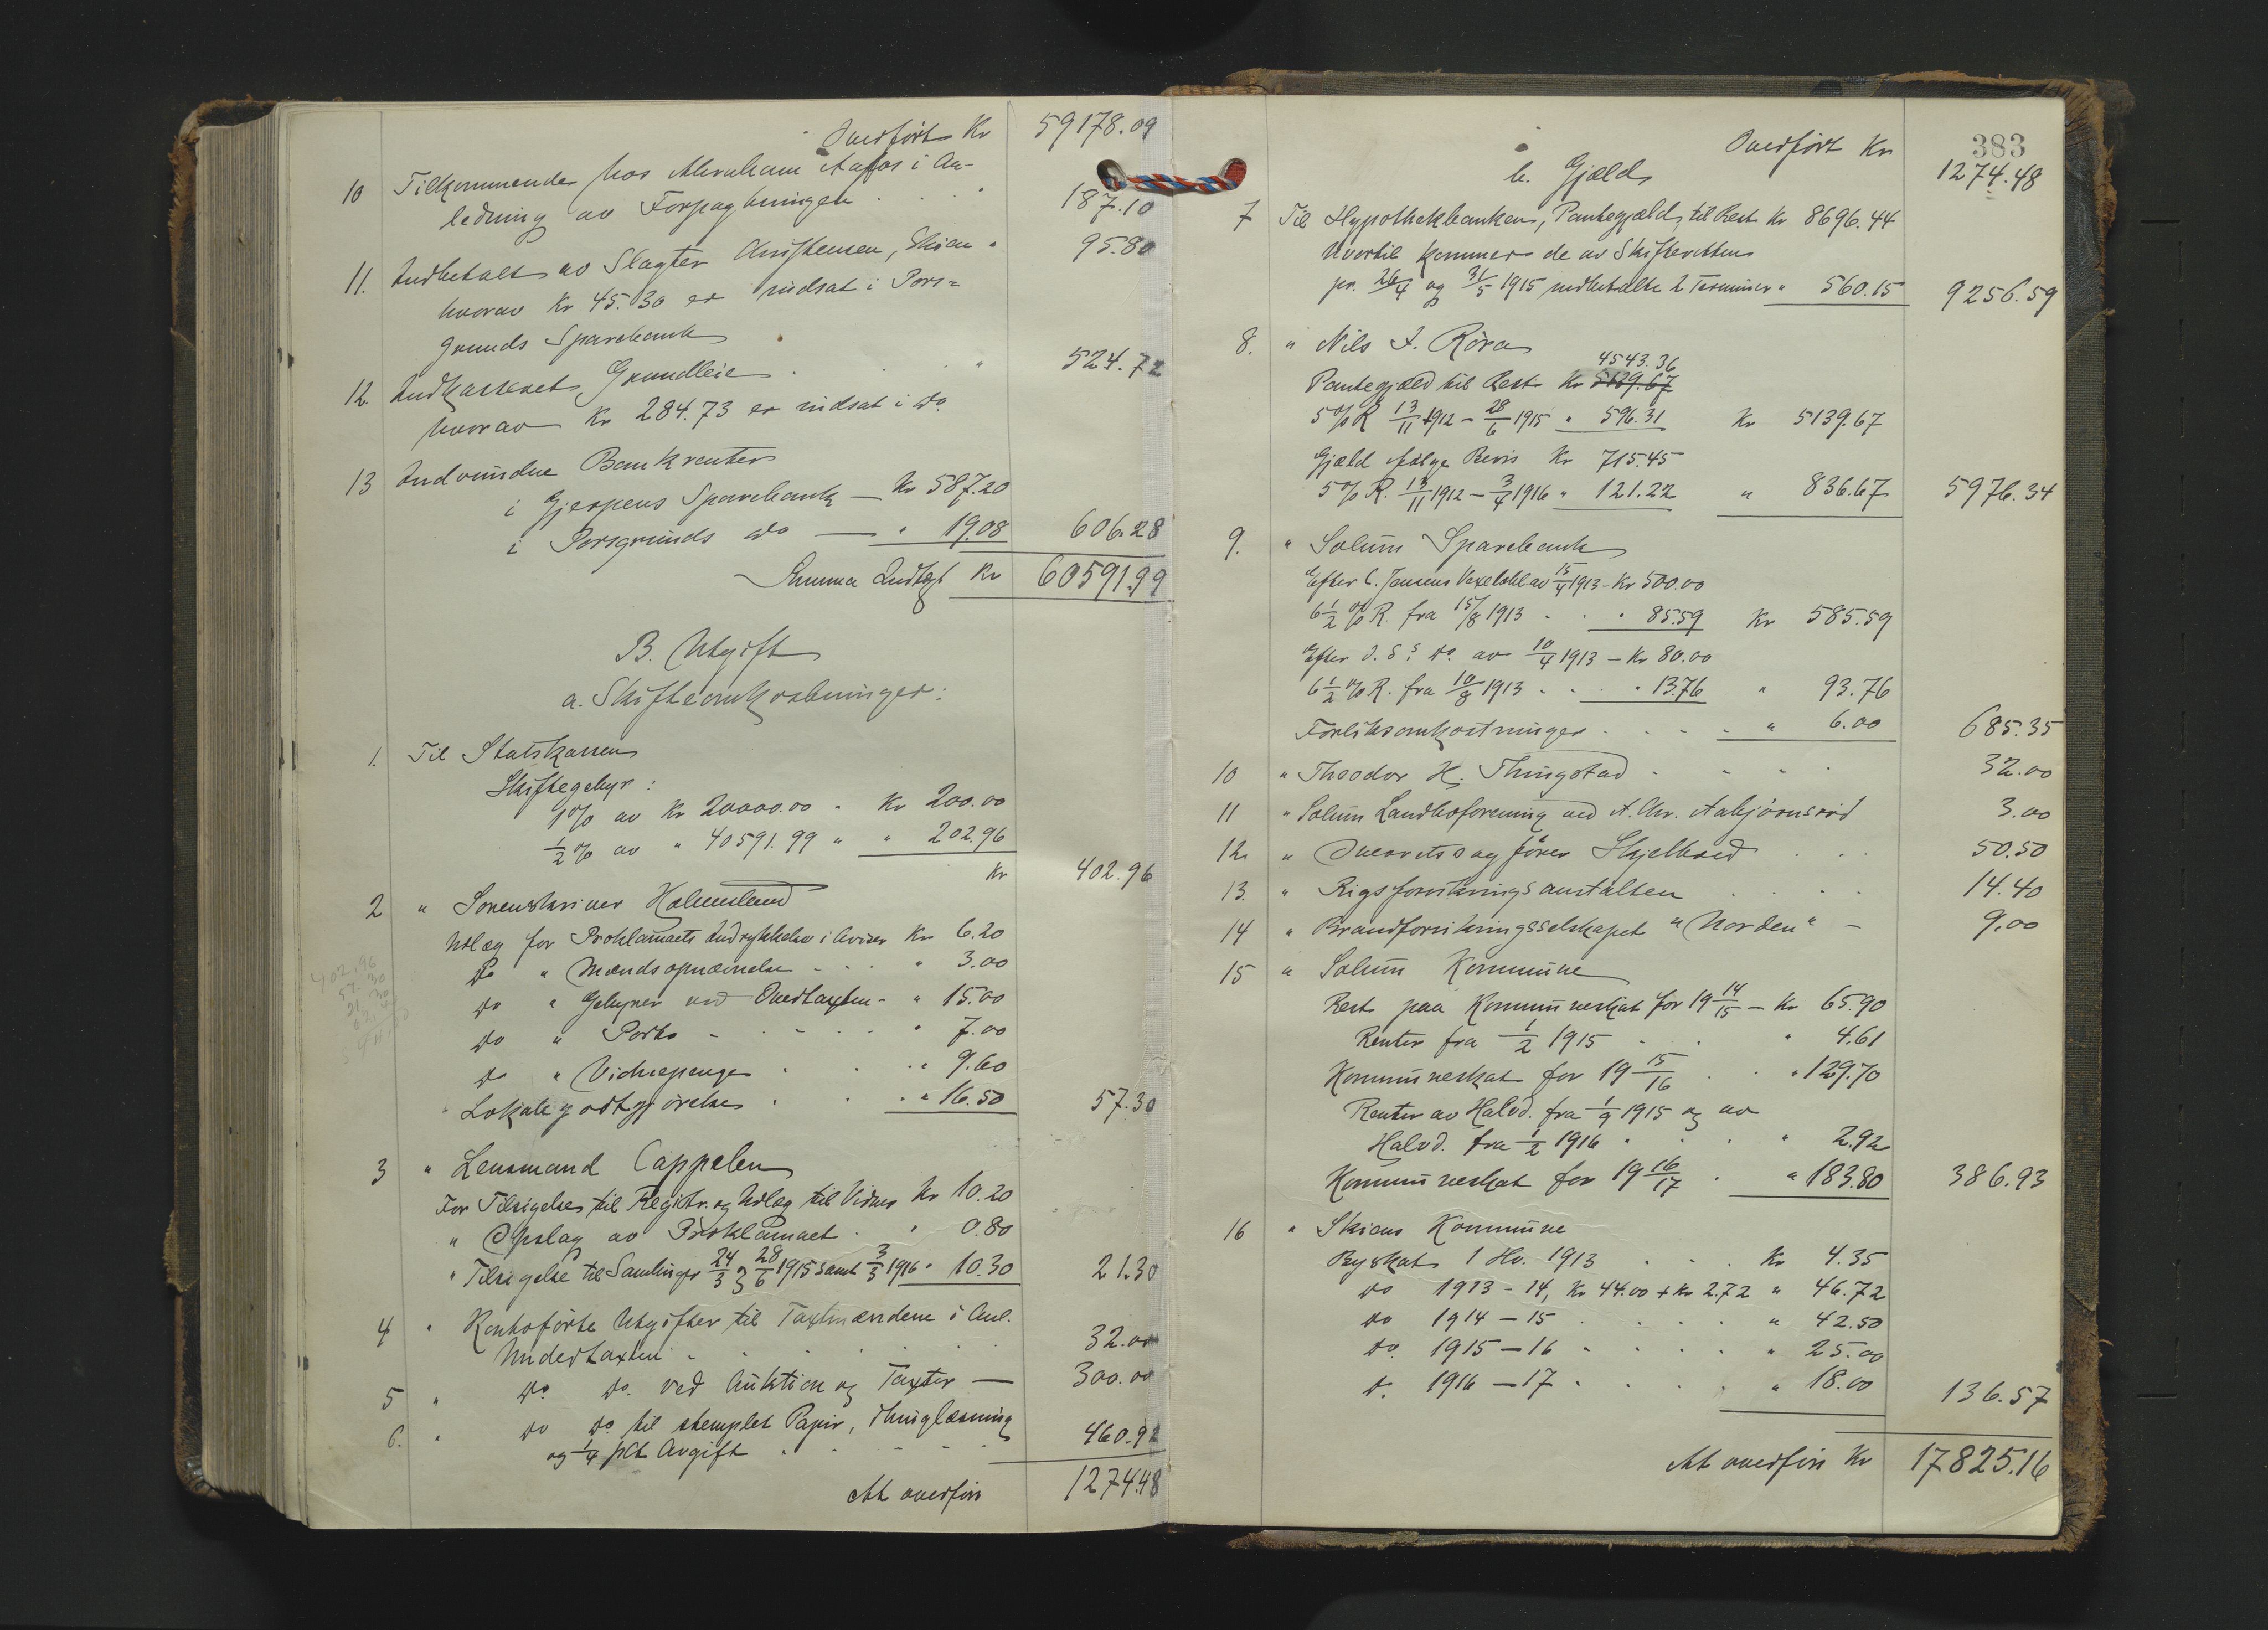 Overført Kr 59178.09
10 Tilkommende hos Abraham Aafos i An-
ledning av Forpagtningen . . . 187.10
11. Indbetalt av Slagter Christensen, Skien " 95.80
hvorav Kr 45.30 er indsat i Pors=
grunds Sparebank
12. Indkasseret Grundleie . . . " 524.72
hvorav Kr 284.73 er indsat i do.
13 Indvundne Bankrenter
i Gjerpens Sparebank — Kr 587.20
i Porsgrunds do — " 19.08 606.28
Summa Indtægt Kr 60591.99
B. Utgift
a. Skifteomkostninger:
1. Til Statskassen
Skiftegebyr:
1% av Kr 20000.00 " Kr 200.00
1/2 % av " 40591.99 " " 202.96
Kr 402.96
2 " Sorenskriver Holmelund
Utlæg for Proklamaets Indrykkelse i Aviser Kr 6.20
Do " Mændsopnævnelse . . . " 3.00
do " Gebyrer ved Overtaxten - " 15.00
do " Porto - . . . " 7.00
do " Vidnepenger . . . " 9.60
" Lokalegodtgjørelse . . . " 16.50 57.30
402.96
57.30
21.30
3 " Lensmand Cappelen
For Tilsigelse til Registr. og Utlæg til Vidner Kr 10.20
" Opslag av Proklamaet . " 0.80
" Tilsigelse til Samlinger 24/3 og 28/6 1915 samt 3/3 1916 " 10.30 21.30
4 " Kontoførte Utgifter til Taxtmændene i Anl.
Undertaxten . . . 32.00
5 " do. do. ved Auktion og Taxter — 300.00
6. " do do til stemplet Papir, Thinglæsning
og 1/4 pCt Avgift . . . 460.92
At overføre 1274.48
383
Overført Kr 1274.48
b. Gjæld
7 Til Hypothekbanken, Pantegjæld, til Rest Kr 8696.44
Hvortil kommer de av Skifteretten
pr. 26/4 og 31/5 1915 indbetalte 2 Terminer " 560.15 9256.59
8. " Nils I. Röra
4543.36
Pantegjæld til Rest Kr 5139.67
5% R 13/11 1912 - 28/6 1915 " 596.31 Kr 5139.67
Gjæld ifølge Bevis Kr 715.45
5% R. 13/11 1912 - 3/4 1916 " 121.22 " 836.67 5976.34
9. " Solum Sparebank
Efter C. Jensens Vexelobl. av 15/4 1913 - Kr 500.00
6 1/2 % R. fra 15/8 1913 . . " 85.59 Kr 585.59
Efter D. S.s do. av 10/4 1913 - Kr 80.00
6 1/2 % R. fra 10/8 1913 . . . " 13.76 " 93.76
Forliksomkostninger . . . . " 6.00 685.35
10 " Theodor H. Thingstad - . . . 32.00
11 " Solum Landboforening ved A. Chr. Asbjørnsrød 3.00
12. " Overretssagfører Skjelbred . . . 50.50
13. " Rigsforsikringsanstalten . . . . 14.40
14 " Brandforsikringsselskapet "Norden" - 9.00
15 " Solum Kommune
Rest paa Kommuneskat for 19 14/15 - Kr 65.90
Renter fra 1/2 1915 . . " 4.61
Kommuneskat for 19 15/16 . . " 129.70
Renter av Halvd. fra 1/9 1915 og av
Halvd. fra 1/2 1916 . . . " 2.92
Kommuneskat for 19 16/17 . " 183.80 386.93
16 " Skiens Kommune
Byskat 1 Hv. 1913 . . . Kr 4.35
do 1913 - 14, Kr 44.00 + Kr 2.72 " 46.72
do 1914 - 15 . . . . " 42.50
do. 1915 - 16 . . . . " 25.00
do. 1916 - 17 . . . . " 18.00 136.57
At overføre Kr 17825.16